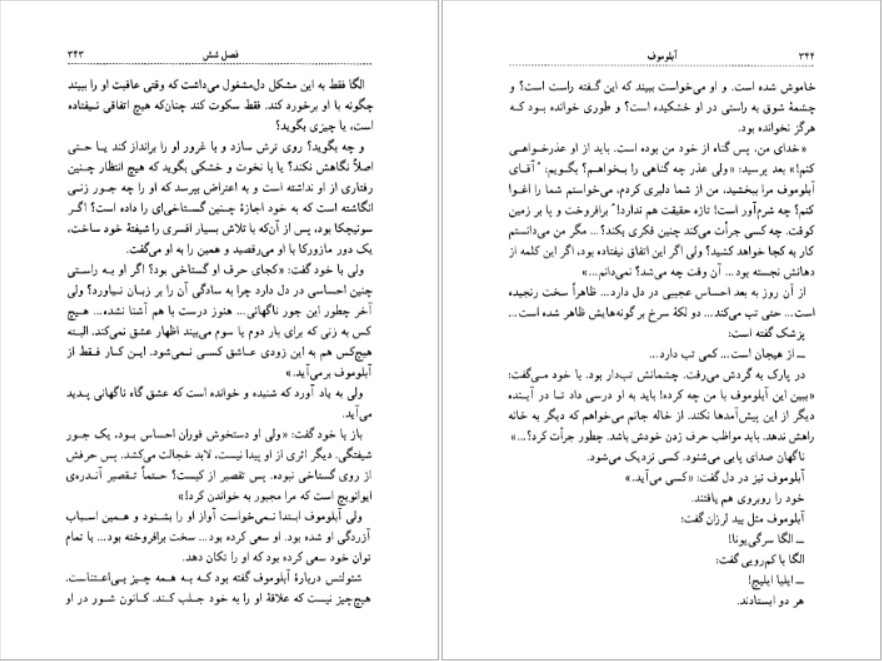 فصل شش ۳۴۳
الگا فقط به این مشکل دل‌مشغول می‌داشت که وقتی عاقبت او را ببیند
چگونه با او برخورد کند. فقط سکوت کند چنان‌که هیچ اتفاقی نیفتاده
است، یا چیزی بگوید؟
و چه بگوید؟ روی ترش سازد و با غرور او را برانداز کند یا حتی
اصلاً نگاهش نکند؟ یا با نخوت و خشکی بگوید که هیچ انتظار چنین
رفتاری از او نداشته است و به اعتراض بپرسد که او را چه جور زنی
انگاشته است که به خود اجازهٔ چنین گستاخی‌ای را داده است؟ اگر
سونیچکا بود، پس از آن‌که با تلاش بسیار افسری را شیفتهٔ خود ساخت،
یک دور مازورکا با او می‌رقصید و همین را به او می‌گفت.
ولی با خود گفت: «کجای حرف او گستاخی بود؟ اگر او به راستی
چنین احساسی در دل دارد چرا به سادگی آن را بر زبان نیاورد؟ ولی
آخر چطور این جور ناگهانی... هنوز درست با هم آشنا نشده... هیچ
کس به زنی که برای بار دوم یا سوم می‌بیند اظهار عشق نمی‌کند. البته
هیچ‌کس هم به این زودی عاشق کسی نمی‌شود. این کار فقط از
آبلوموف برمی‌آید.»
ولی به یاد آورد که شنیده و خوانده است که عشق گاه ناگهانی پدید
می‌آید.
باز با خود گفت: «ولی او دستخوش فوران احساس بود، یک جور
شیفتگی. دیگر اثری از او پیدا نیست، لابد خجالت می‌کشد. پس حرفش
از روی گستاخی نبوده. پس تقصیر از کیست؟ حتماً تقصیر آندره‌ی
ایوانویچ است که مرا مجبور به خواندن کرد!»
ولی آبلوموف ابتدا نمی‌خواست آواز او را بشنود و همین اسباب
آزردگی او شده بود. او سعی کرده بود... سخت برافروخته بود... با تمام
توان خود سعی کرده بود که او را تکان دهد.
شتولتس دربارهٔ آبلوموف گفته بود که به همه چیز بی‌اعتناست.
هیچ‌چیز نیست که علاقهٔ او را به خود جلب کند. کانون شور در او
آبلوموف ۳۴۴
خاموش شده است. و او می‌خواست ببیند که این گفته راست است؟ و
چشمهٔ شوق به راستی در او خشکیده است؟ و طوری خوانده بود که
هرگز نخوانده بود.
«خدای من، پس گناه از خود من بوده است. باید از او عذرخواهی
کنم!» بعد پرسید: «ولی عذر چه گناهی را بخواهم؟ بگویم: "آقای
آبلوموف مرا ببخشید، من از شما دلبری کردم، می‌خواستم شما را اغوا
کنم؟ چه شرم‌آور است! تازه حقیقت هم ندارد!" برافروخت و پا بر زمین
کوفت. چه کسی جرأت می‌کند چنین فکری بکند؟... مگر من می‌دانستم
کار به کجا خواهد کشید؟ ولی اگر این اتفاق نیفتاده بود، اگر این کلمه از
دهانش نجسته بود... آن وقت چه می‌شد؟ نمی‌دانم...»
از آن روز به بعد احساس عجیبی در دل دارد... ظاهراً سخت رنجیده
است... حتی تب می‌کند... دو لکهٔ سرخ بر گونه‌هایش ظاهر شده است...
پزشک گفته است:
ــ از هیجان است... کمی تب دارد...
در پارک به گردش می‌رفت. چشمانش تب‌دار بود. با خود می‌گفت:
«ببین این آبلوموف با من چه کرده! باید به او درسی داد تا در آینده
دیگر از این پیش‌آمدها نکند. از خاله جانم می‌خواهم که دیگر به خانه
راهش ندهد. باید مواظب حرف زدن خودش باشد. چطور جرأت کرد؟...»
ناگهان صدای پایی می‌شنود. کسی نزدیک می‌شود.
آبلوموف نیز در دل گفت: «کسی می‌آید.»
خود را روبروی هم یافتند.
آبلوموف مثل بید لرزان گفت:
ــ الگا سرگی‌یونا!
الگا با کم‌رویی گفت:
ــ ایلیا ایلیچ!
هر دو ایستادند.